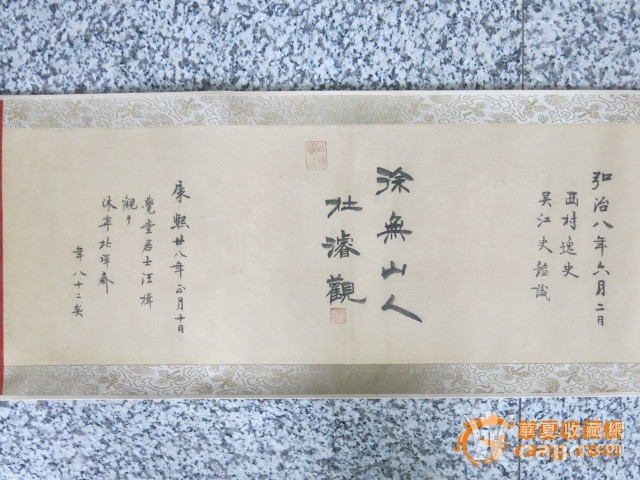 弘治八年六月二日
西村逸史
吴江史鑑識
徐無山人
杜濬觀
康熙廿八年正月十日
覺堂居士汪楫
觀于
休寧北詳齋
年八十二矣
華夏收藏網
cang.com